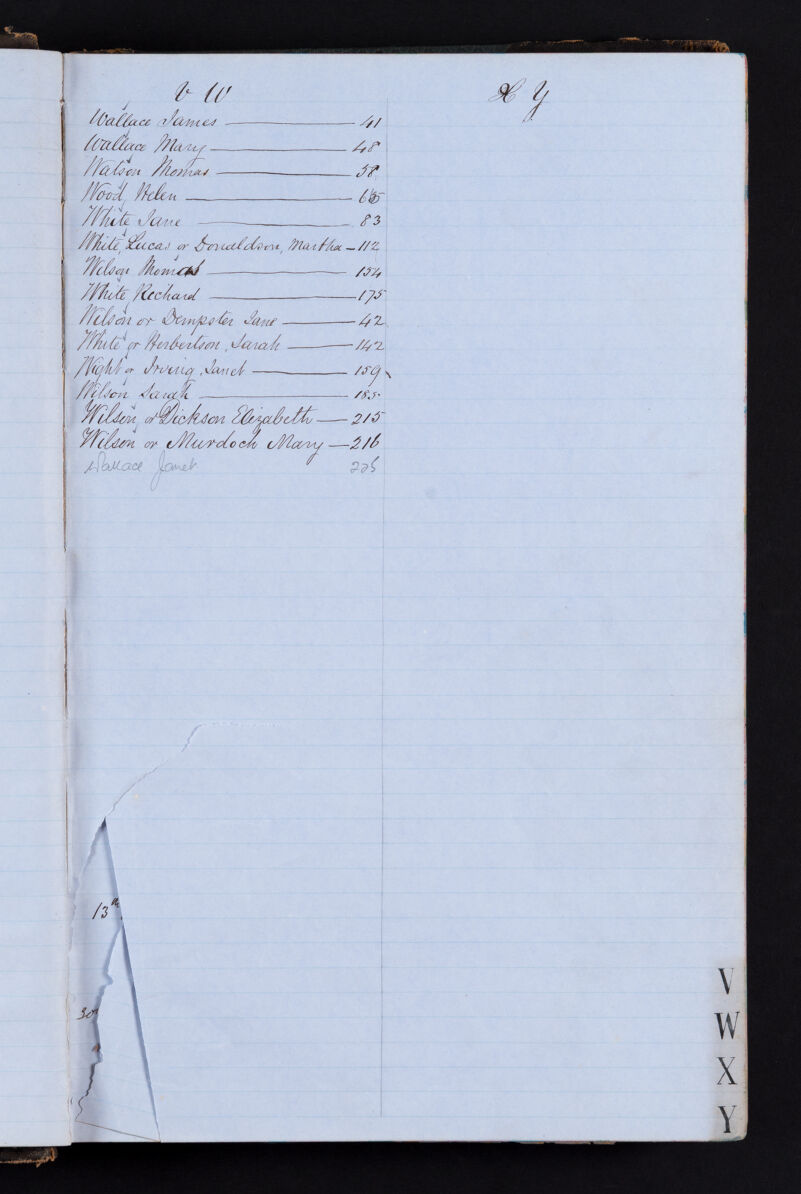 V W
Wallace James — 41
Wallace Mary — 48
Watson Thomas — 58
Wood, Helen — 65
White Jane — 83
White, Lucas or Donaldson, Martha — 112
Wilson Thomas — 154
White Richard — 175
Wilson or Dempster Jane — 42
White or Herbertson, Sarah — 142
Wight or Irving, Janet — 159
Wilson Sarah — 185
Wilson, or Dickson Elizabeth — 215
Wilson or Murdoch Mary — 216
Wallace Janet
X Y
13th
30
V
W
X
Y